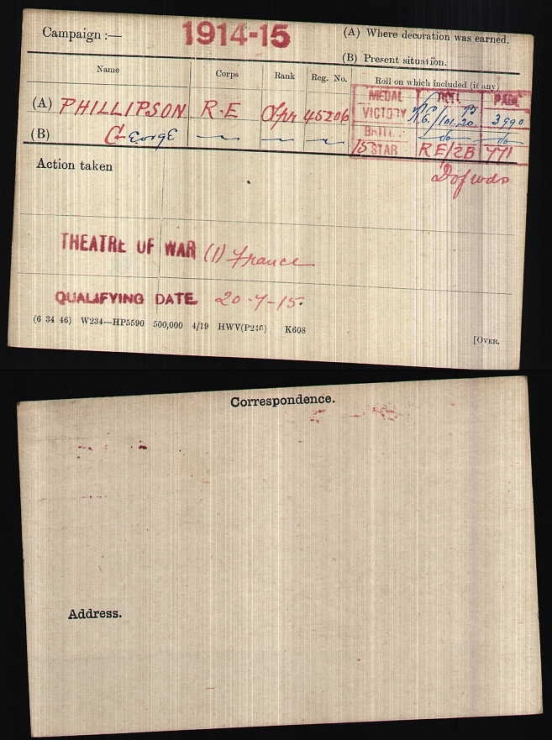 Campaign :— 1914-15 (A) Where decoration was earned.
(B) Present situation.
Name Corps Rank Reg. No. Roll on which included (if any)
MEDAL ROLL PAGE
(A) PHILLIPSON R.E Spr 45206 VICTORY 3990
(B) George BRITISH do do
15 STAR RE/2B 771
Action taken D of wds
THEATRE OF WAR (1) France
QUALIFYING DATE 20-7-15.
(6 34 46) W234—HP5590 500,000 4/19 HWV(P240) K608
[OVER.
Correspondence.
Address.